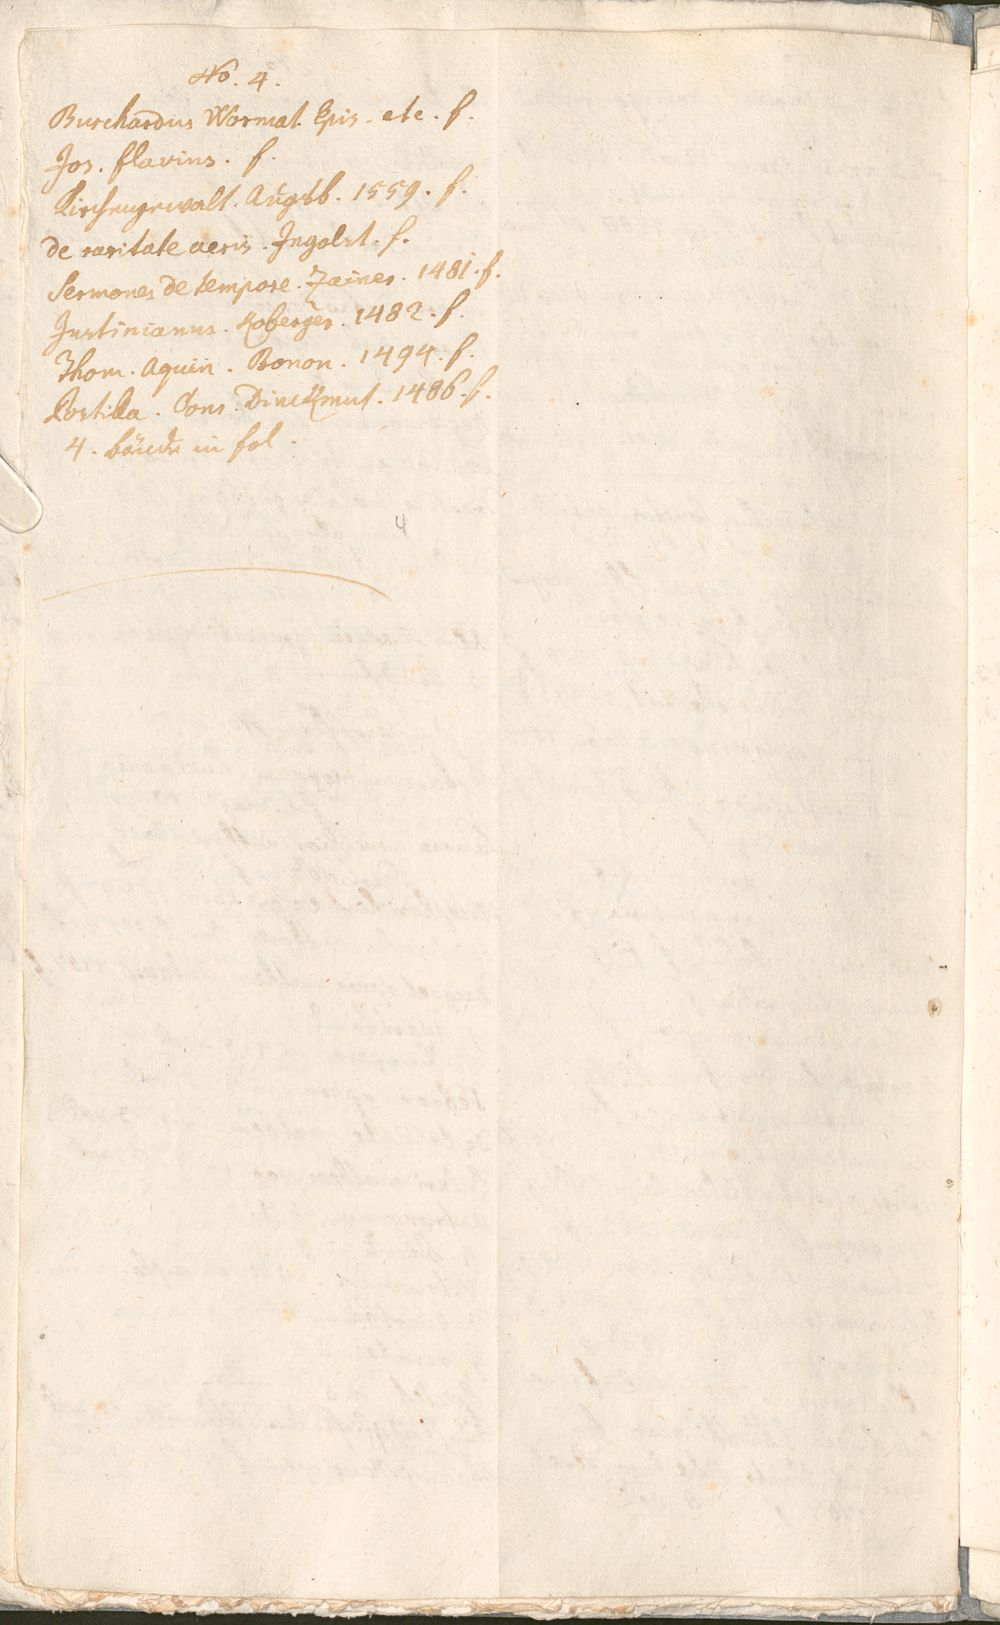 No. 4.
Burchardus Wormat. Epis. etc. f.
Jos. flavius. f.
Kirchengewalt. Augsb. 1559. f.
de raritate aeris. Ingolst. f.
Sermones de tempore. Zainer. 1481. f.
Justinianus. Koberger. 1482. f.
Thom. Aquin. Bonon. 1494. f.
Postilla. Cons. Dinckmut. 1486. f.
4. bände in fol.
4